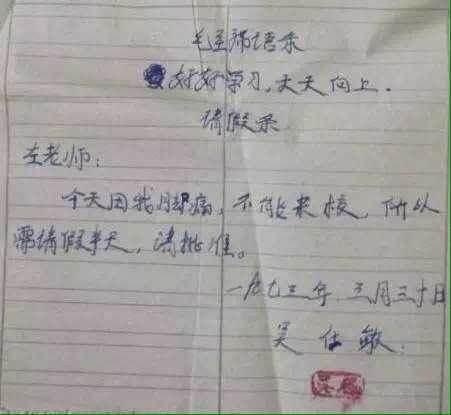 毛主席语录
好好学习,天天向上.
请假条
左老师:
今天因我脚痛,不能来校,所以
需请假半天,请批准。
一九七三年三月三十日
吴仕敏